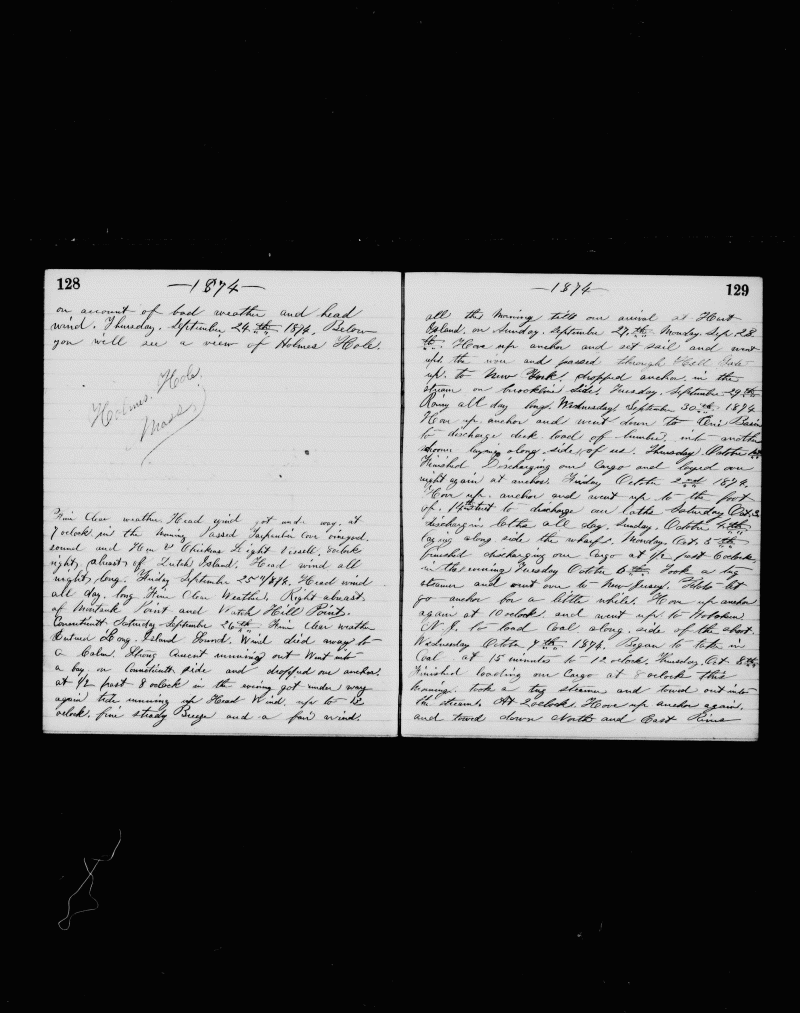 128
—1874—
on account of bad weather and head
wind. Thursday. September 24.th 1874. Below
you will see a view of Holmes Hole.
Holmes. Hole.
Mass.
Fine Clear weather. Head wind got und. way. at
7 oclock in the morning Passed Tarpaulin Cove vineyard.
sound and Hen & Chickens Light Vessell. 8 oclock
night, abreast of Dutch Island. Head wind all
night, long. Friday September 25th 1874. Head wind
all day. long Fine Clear Weather. Right abreast.
of Montauk Point and Watch Hill Point.
Connecticutt Saturday September 26th Fine Clear weather
Entered Long. Island Sound. Wind died away to
a Calm. Strong Current running out Went into
a bay. on Connecticutt. side and dropped our anchor.
at 1/2 past 8 oclock in the evening got under way
again tide running up Head Wind. up to 12
oclock. fine steady Breeze and a fair wind.
—1874—
129
all the morning till our arrival at Hart
Island. on Sunday. September 27.th Monday. Sep 28
th. Hove up anchor and set sail and went
up. the river and passed through Hell Gate
up. to New York. dropped anchor. in the
stream on brooklin side. Tuesday. September. 29th
Rainy all day long. Wednesday September 30th 1874
Hove up. anchor and went down to Erie Basin
to discharge deck load of lumber. into another
laying along. side, of us. Thursday October 1st
Finished Discharging our Cargo and layed over
night again at anchor. Friday October 2nd 1874.
Hove up. anchor and went up. to the foot
of. 14th street to discharge our laths Saturday Oct. 3.
discharging laths all day. Sunday. October 4th
laying along side the wharf. Monday. Oct. 5th
finished discharging our Cargo at 1/2 past 6 oclock
in the evening Tuesday October 6th. Took a tug
steamer and went over to New Jersey. let
go anchor for a little while. Hove up anchor
again at 10 oclock. and went up. to Hoboken
N. J. to load Coal. along. side of the
Wednesday October 7th 1874. Began to take in
Coal. at 15 minutes to 12 oclock. Thursday. Oct. 8th
Finished loading our Cargo at 8 oclock this
took a tug steamer and towed out into
the stream. At 2 oclock. Hove up anchor again.
and towed down North and East River